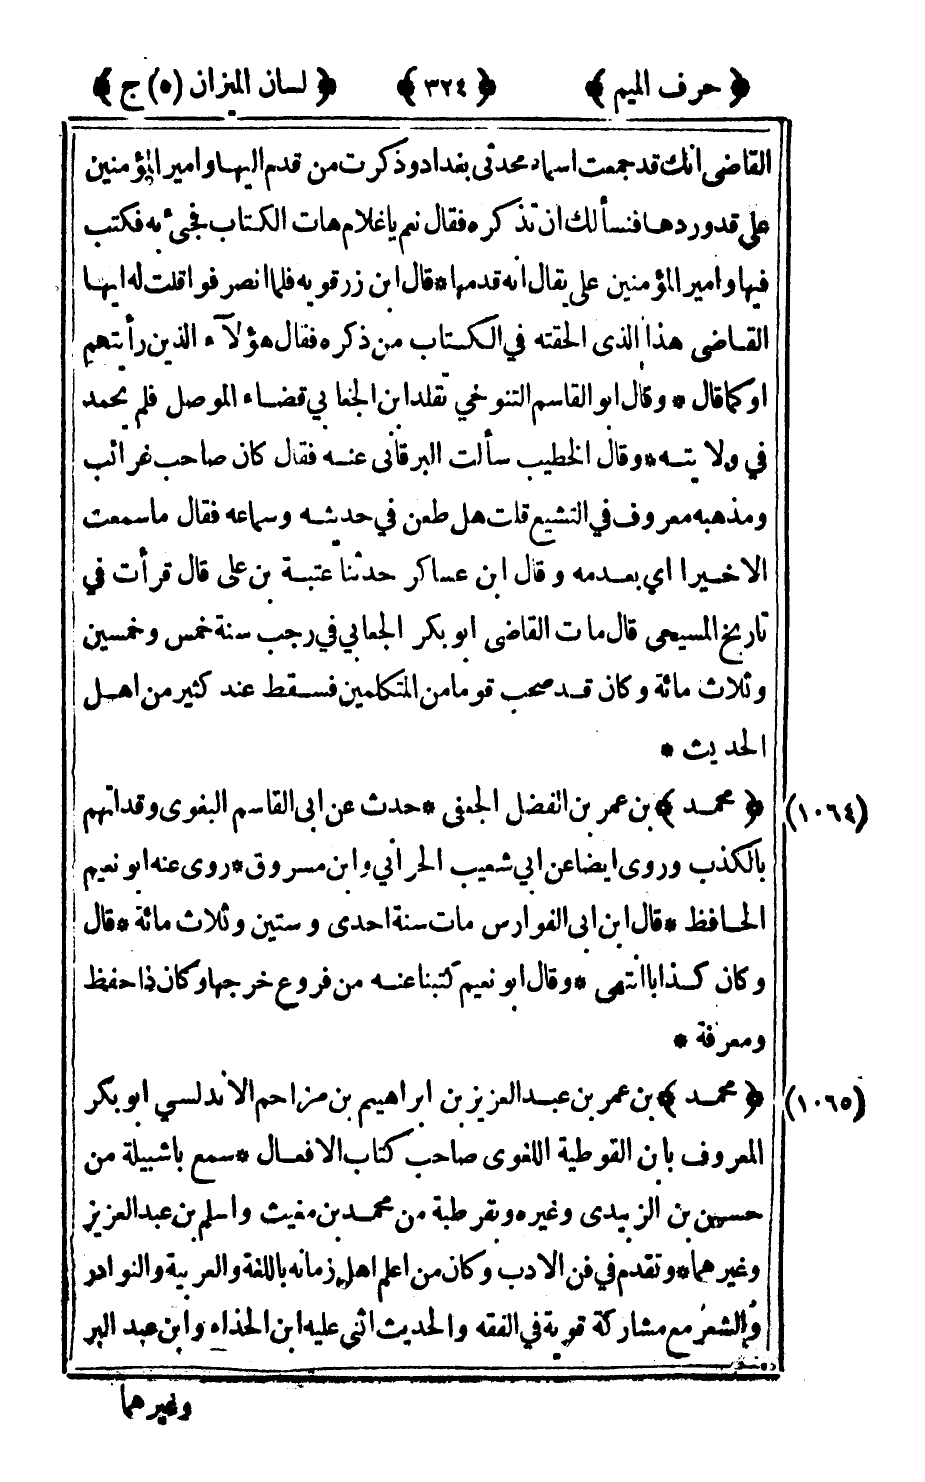 ﴿ حرف الميم ﴾ ﴿ ٣٢٤ ﴾ ﴿ لسان الميزان (٥) ج ﴾
القاضى انك قد جمعت اسماء محدثى بغداد وذكرت من قدم اليها وامير المؤمنين
على قد وردها فنسألك ان تذكره فقال نعم يا غلام هات الكتاب فجىء به فكتب
فيها وامير المؤمنين على يقال انه قدمها * قال ابن زرقويه فلما انصرفوا قلت له ايها
القاضى هذا الذى الحقته في الكتاب من ذكره فقال هؤلآء الذين رأيتهم
او كما قال * وقال ابو القاسم التنوخي تقلد ابن الجعابي قضاء الموصل فلم يحمد
في ولايته * وقال الخطيب سألت البرقانى عنه فقال كان صاحب غرائب
ومذهبه معروف في التشيع قلت هل طعن في حديثه وسماعه فقال ما سمعت
الا خيرا اي بعدمه وقال ابن عساكر حدثنا عتبة بن على قال قرأت في
تاريخ المسيحى قال مات القاضى ابو بكر الجعابي في رجب سنة خمس وخمسين
وثلاث مائة وكان قد صحب قوما من المتكلمين فسقط عند كثير من اهل
الحديث *
(١٠٦٤) ﴿ محمد ﴾ بن عمر بن الفضل الجعفى * حدث عن ابى القاسم البغوى وقد اتهم
بالكذب وروى ايضا عن ابي شعيب الحراني وابن مسروق * روى عنه ابو نعيم
الحافظ * قال ابن ابى الفوارس مات سنة احدى وستين وثلاث مائة * قال
وكان كذابا انتهى * وقال ابو نعيم كتبنا عنه من فروع خرجها وكان ذا حفظ
ومعرفة *
(١٠٦٥) ﴿ محمد ﴾ بن عمر بن عبد العزيز بن ابراهيم بن مزاحم الاندلسي ابو بكر
المعروف بابن القوطية اللغوى صاحب كتاب الافعال * سمع باشبيلة من
حسين بن الزبيدى وغيره وبقرطبة من محمد بن مغيث واسلم بن عبد العزيز
وغيرهما * وتقدم في فن الادب وكان من اعلم اهل زمانه باللغة والعربية والنوادر
والشعر مع مشاركة قوية في الفقه والحديث اثنى عليه ابن الحذاء وابن عبد البر
وغيرهما